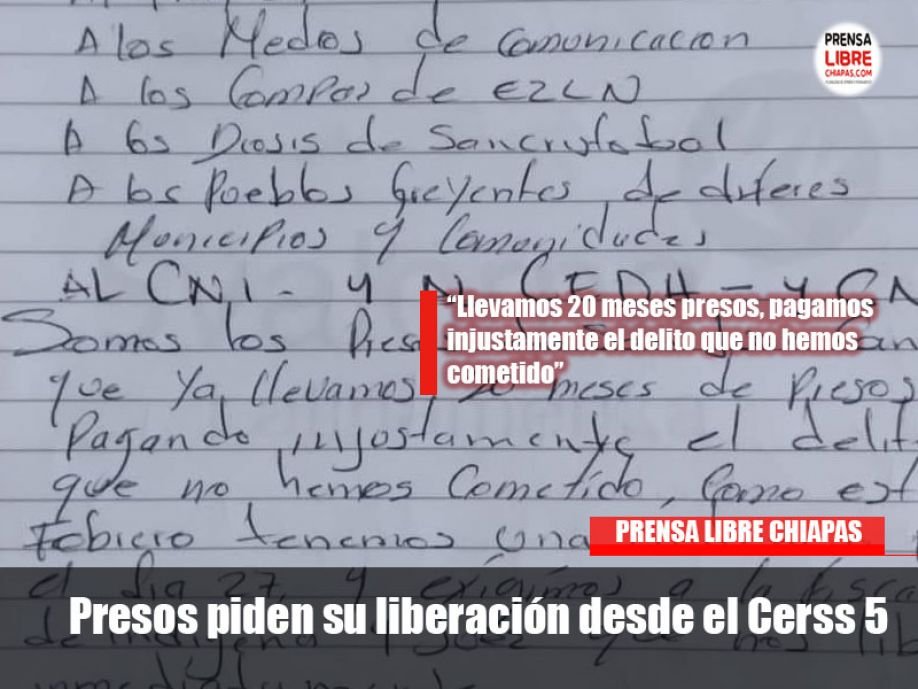 A los Medos de Comunicacion
PRENSA
LIBRE
CHIAPAS.COM
A los Compas de EZLN
A los Diosis de Sancrystobal
A los Pueblos Creyentes de diferes
Municipios y Comunidades
AL CNI - Y N CEDH - Y CN
"Llevamos 20 meses presos, pagamos
injustamente el delito que no hemos
cometido"
Somos los Pres
que ya llevamos 20 meses de Presos
Pagando injustamente el delit
que no hemos Cometido, Como est
Febrero tenemos una
PRENSA LIBRE CHIAPAS
el dia 27, y exigimos a la fisca
Presos piden su liberación desde el Cerss 5
de indigena